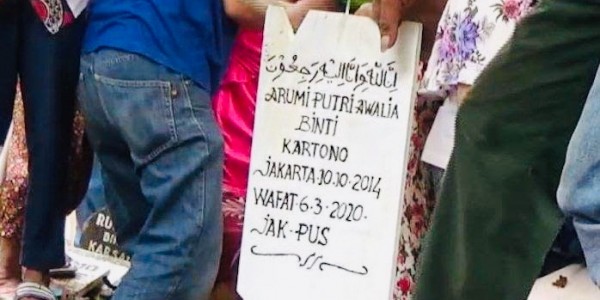 إنا لله وإنا إليه راجعون
ARUMI PUTRI AWALIA
BINTI
KARTONO
JAKARTA 10.10.2014
WAFAT.6.3.2020.
JAK.PUS